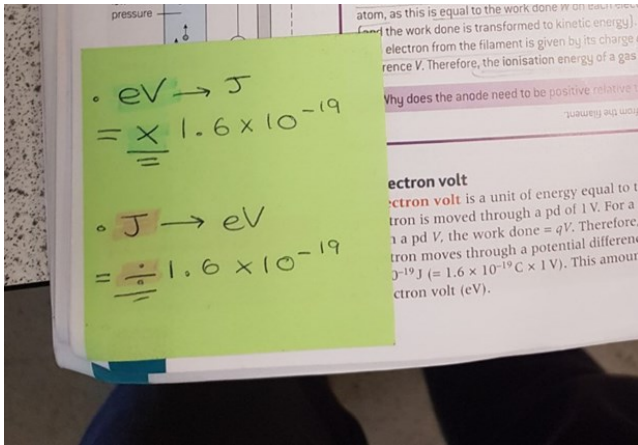 pressure
• eV → J
= × 1.6 × 10⁻¹⁹
• J → eV
= ÷ 1.6 × 10⁻¹⁹
atom, as this is equal to the work done W on each
the work done is transformed to kinetic energy)
electron from the filament is given by its charge
rence V. Therefore, the ionisation energy of a gas
Why does the anode need to be positive relative
from the filament.
ectron volt
ctron volt is a unit of energy equal to t
tron is moved through a pd of 1 V. For a
h a pd V, the work done = qV. Therefore,
tron moves through a potential differen
0⁻¹⁹ J (= 1.6 × 10⁻¹⁹ C × 1 V). This amoun
ctron volt (eV).